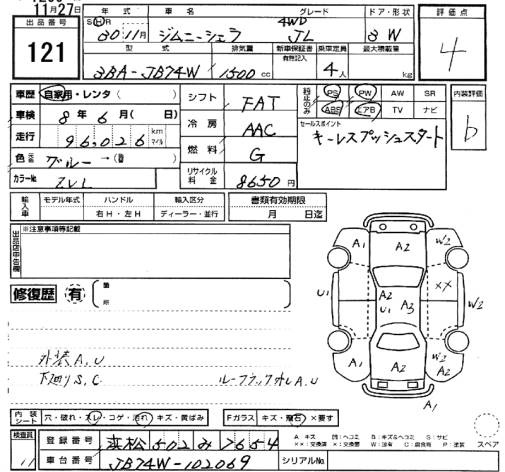 11月27日
出品番号
121
年式 車名 グレード ドア・形状
SH 30 11月 ジムニーシエラ 4WD JL 3 W
型式 排気量 新車保証書 乗車定員 最大積載量
有無記入
3BA-JB74W 1500 cc 4人 kg
評価点
4
車歴 自家用・レンタ( )
車検 8年6月( 日)
走行 96,026 km マイル
色 元色 ブルー →(替 )
カラーNo. ZVL
シフト FAT
冷房 AAC
燃料 G
リサイクル料金 8650円
純正のみ PS PW AW SR
ABS エアB TV ナビ
セールスポイント
キーレスプッシュスタート
内装評価
b
輸入車 モデル年式 ハンドル 輸入区分 書類有効期限
右H・左H ディーラー・並行 月 日迄
出品店申告欄 ※注意事項等記載
修復歴 有 箇所
外装A.U
下廻りS.C ルーフラック外しA.U
A1 A2 W2
U1 A2 U1 A3 XX W2
A1 A2 W2 A2
A1
内装シート 穴・破れ・スレ・コゲ・汚れ・キズ・黄ばみ Fガラス キズ・飛石・×要す
検査員 登録番号 浜松502み7654
車台番号 JB74W-102069 シリアルNo.
スペア